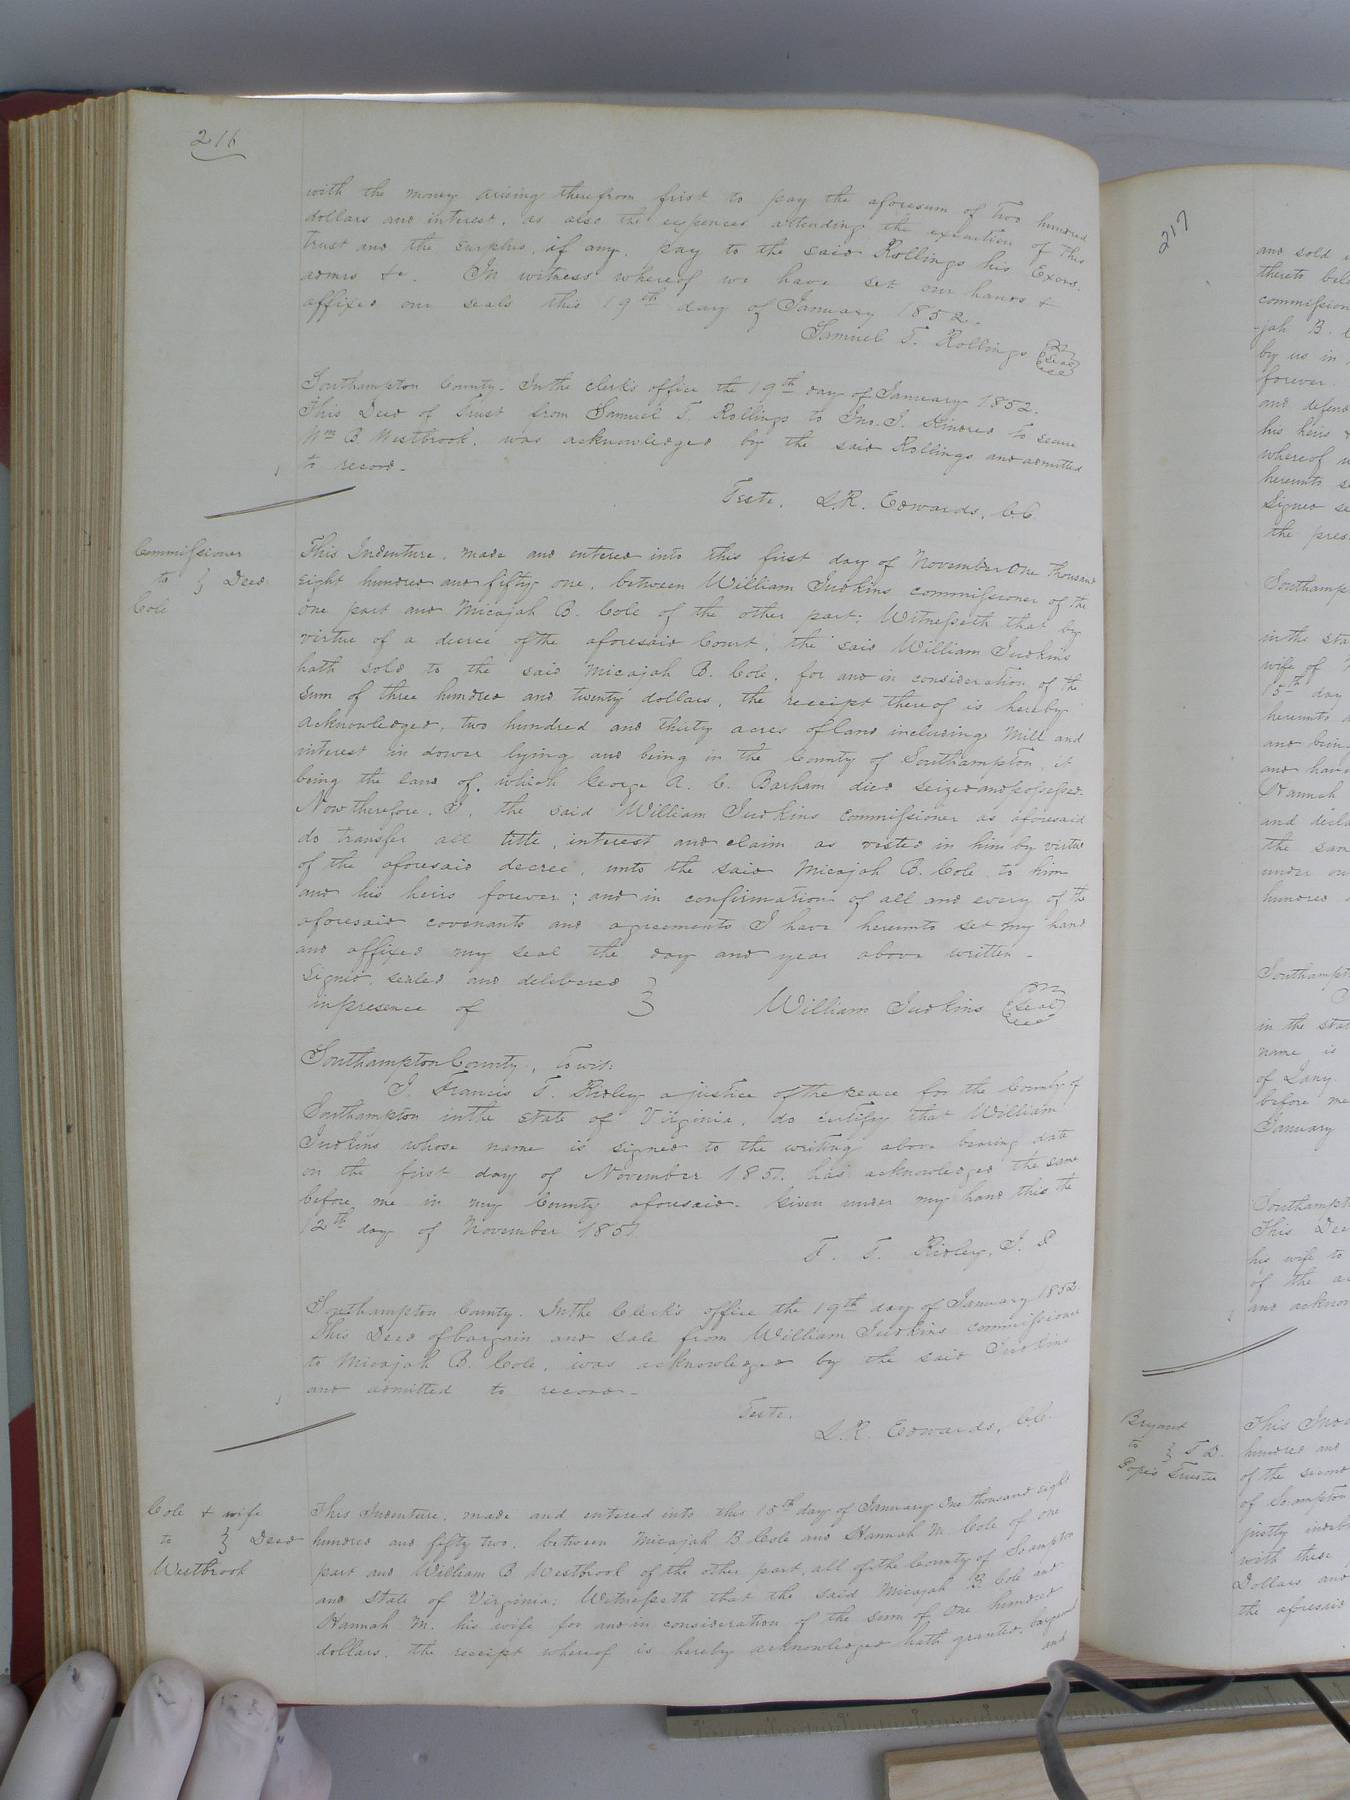 216
with the money arising therefrom first to pay the aforesum of Two hundred
dollars and interest, as also the expences attending the execution of this
trust and the surplus, if any, pay to the said Rollings his Exors.
admrs &c. In witness whereof we have set our hands &
affixed our seals this 19th day of January 1852.
Samuel T. Rollings Seal
Southampton County. In the clerk's office the 19th day of January 1852.
This Deed of Trust from Samuel T. Rollings to Jno. J. Kindred to secure
Wm B. Westbrook, was acknowledged by the said Rollings and admitted
to record.
Teste, L.R. Edwards, C.C.
Commissioner
to } Deed
Cole
This Indenture, made and entered into this first day of November One thousand
eight hundred and fifty one, between William Judkins commissioner of the
one part and Micajah B. Cole of the other part; Witnesseth that by
virtue of a decree of the aforesaid Court, the said William Judkins
hath sold to the said Micajah B. Cole, for and in consideration of the
sum of three hundred and twenty dollars, the receipt thereof is hereby
acknowledged, two hundred and thirty acres of land including Mill and
interest in dower lying and being in the County of Southampton, it
being the land of which George A. C. Barham died seized and possessed.
Now therefore, I, the said William Judkins commissioner as aforesaid
do transfer all title, interest and claim as vested in him by virtue
of the aforesaid decree, unto the said Micajah B. Cole to him
and his heirs forever; and in confirmation of all and every of the
aforesaid covenants and agreements I have hereunto set my hand
and affixed my seal the day and year above written.
Signed, sealed and delivered }
in presence of William Judkins Seal
Southampton County, to wit:
I, Francis T. Ridley a justice of the peace for the County of
Southampton in the State of Virginia, do certify that William
Judkins whose name is signed to the writing above bearing date
on the first day of November 1851. has acknowledged the same
before me in my County aforesaid. Given under my hand this the
12th day of November 1851
F. T. Ridley, J. P
Southampton County. In the Clerk's office the 19th day of January 1852.
This Deed of bargain and sale from William Judkins commissioner
to Micajah B. Cole, was acknowledged by the said Judkins
and admitted to record.
Teste,
L.R. Edwards, C.C.
Cole & wife
to } Deed
Westbrook
This Indenture, made and entered into this 15th day of January One thousand eight
hundred and fifty two, between Micajah B. Cole and Hannah M. Cole of one
part and William B Westbrook of the other part, all of the County of Sampton
and State of Virginia; Witnesseth that the said Micajah B Cole and
Hannah M. his wife for and in consideration of the sum of One hundred
dollars, the receipt whereof is hereby acknowledged hath granted, bargained
and
217
and sold
thereto
commission
jah B.
by us in
forever.
and defend
his heirs
whereof
hereunto
Signed
the
in the
wife of
15th day
hereunto
and being
and
Hannah
and
the
under
hundred
in the
name is
of
before me
January
This
his wife to
of the
and
Bryant
to } T. D.
Pope's Trustee
This
hundred and
of the second
of Sampton
justly
with these
Dollars and
the aforesaid